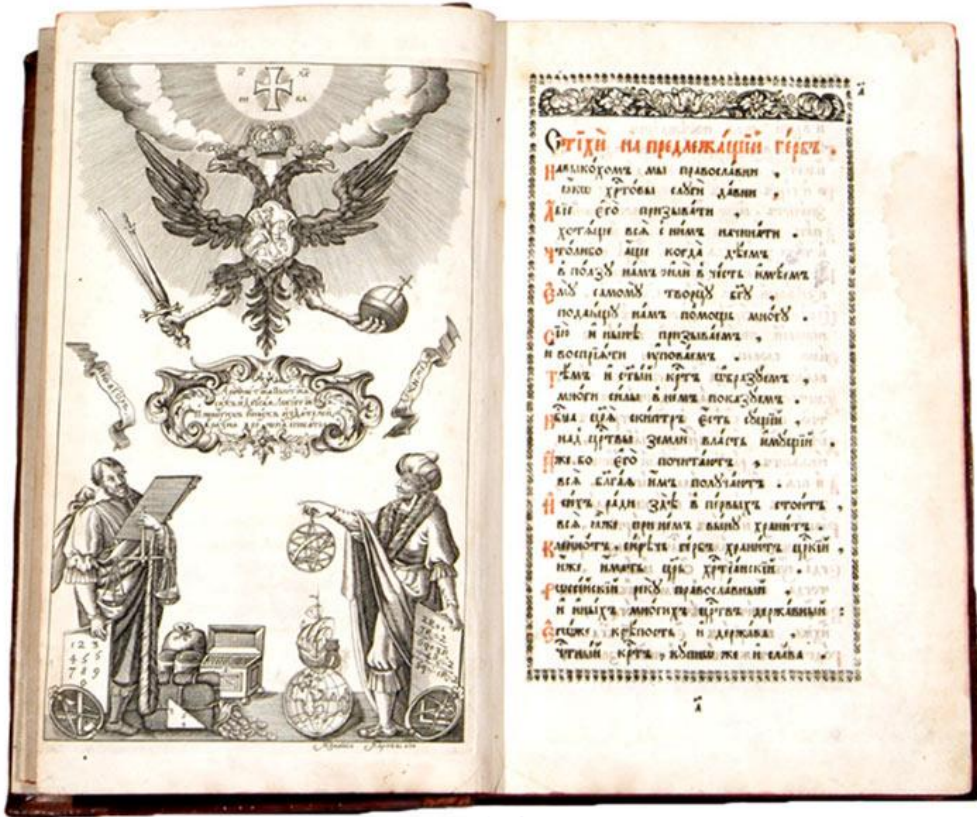 І҃С Х҃С
НИ КА
ПИѲАГОРЪ
АРХИМЕДЪ
1 2 3
4 5 6
7 8 9
Сті́хи̂ на предлежа́щїй ге́рбъ .
Навыко́хомъ мы правосла́вни ,
ꙗ҆́кѡ хр҃то́вы слꙋги̂ да́вни ,
А҆́бїе є҆го̀ призыва́ти ,
хотѧ́ще всѧ̂ с ни́мъ начина́ти .
Что́либо а҆́ще когда̀ дѣ́емъ
в по́лзꙋ на́мъ и҆лѝ в че́сть и҆мѣ́емъ
Є҆мꙋ̀ самомꙋ̀ творцꙋ̀ бг҃ꙋ ,
подаю́щꙋ на́мъ по́мощь мно́гꙋ .
Сїѝ и҆ ны́нѣ призыва́емъ ,
и воспрїѧ́ти ᲂу҆пова́емъ .
Тѣ́мъ и҆ ст҃ы́й кр҃тъ в̾ѡбразꙋ́емъ ,
мно́ги си́лы в не́мъ пока́зꙋемъ .
Бг҃а цр҃ѧ̀ ски́птръ є҆́сть сꙋ́щїй ,
над цр҃твы землѝ вла́сть и҆мꙋ́щїй
И҆̀же бо є҆го̀ почита́ютъ ,
всѧ̂ бл҃га́ѧ и҆́мъ полꙋча́ютъ .
И҆ си́хъ ра́ди здѣ̀ в пе́рвыхъ стои́тъ
всѧ̂ ꙗ҆̀же при не́мъ вы́нꙋ храни́тъ .
Клейно́тъ си́рѣчь ге́рбъ храни́тъ цр҃кїй ,
и҆́же и҆́мать цр҃ь хр҃тїа́нскїй .
Рѡссі́йскїй рекꙋ̀ правосла́вный
и҆ и҆ны́хъ мно́гихъ цр҃твъ держа́вный :
Є҆мꙋ́же крѣ́пость и҆ держа́ва
ч҃тны́й кр҃тъ , кꙋ́пнѡ же и҆ сла́ва .
а҃